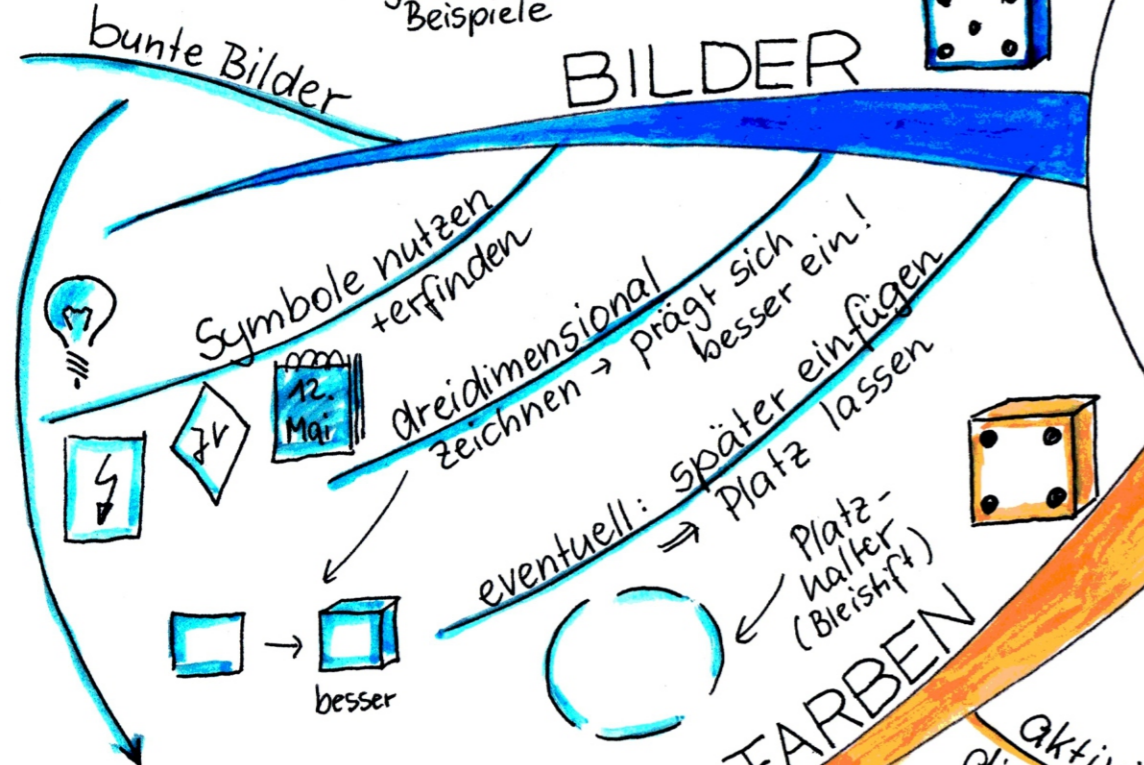 Beispiele
bunte Bilder
BILDER
Symbole nutzen
+erfinden
12.
Mai
dreidimensional
zeichnen → prägt sich
besser ein!
eventuell: später einfügen
⇒ Platz lassen
Platz-
halter
(Bleistift)
→
besser
FARBEN